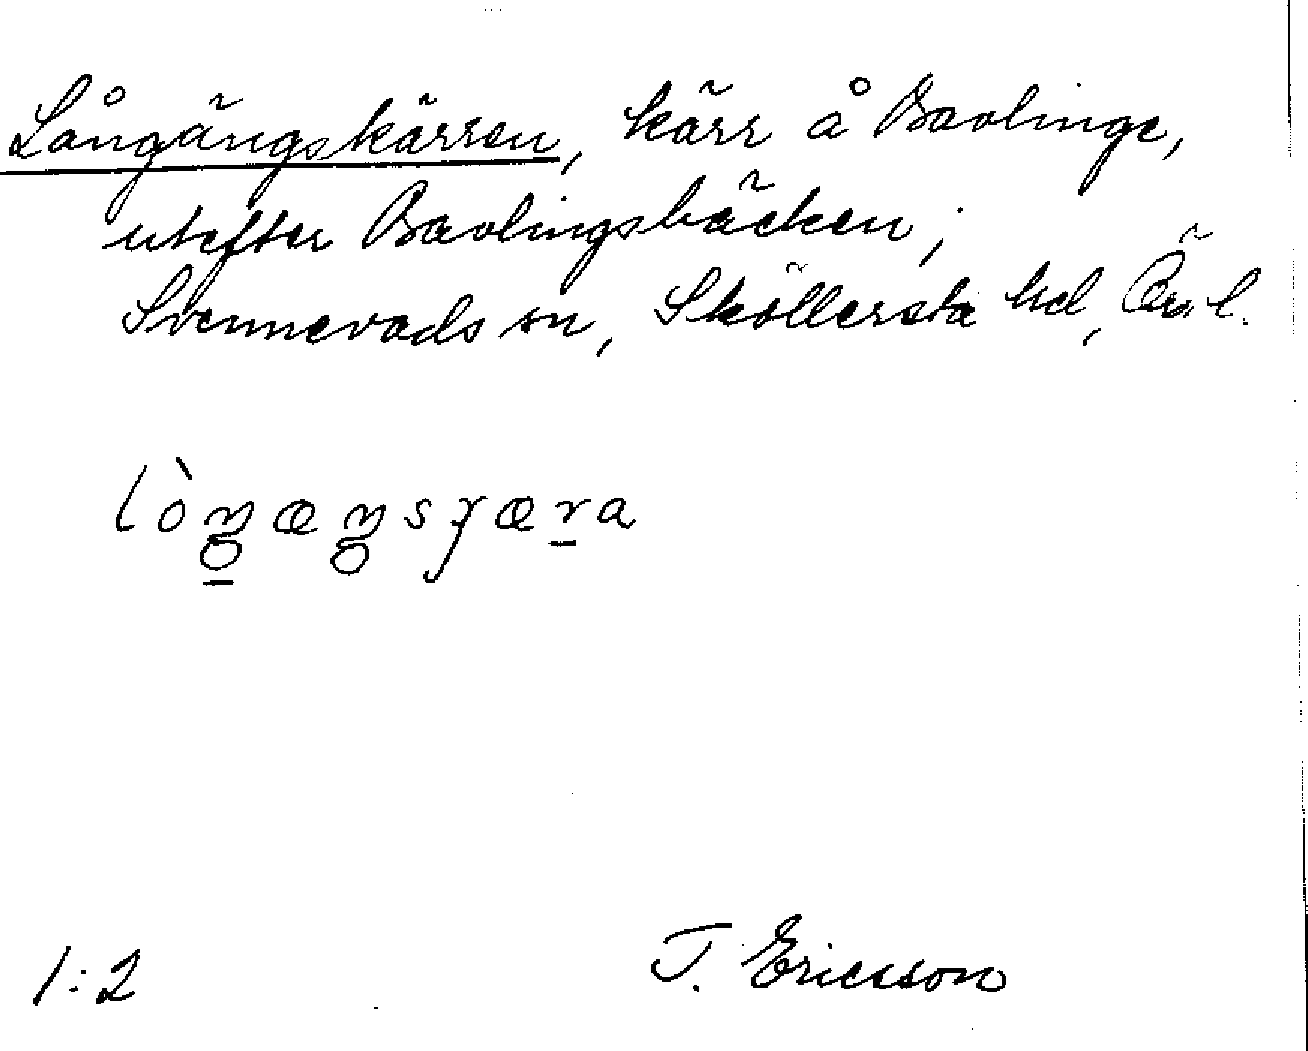 Långängskärren, kärr å Bavlinge,
utefter Bavlingsbäcken,
Svennevads sn, Sköllersta hd, Ör. l.
lòŋæŋsɟæra
1:2
T. Ericsson